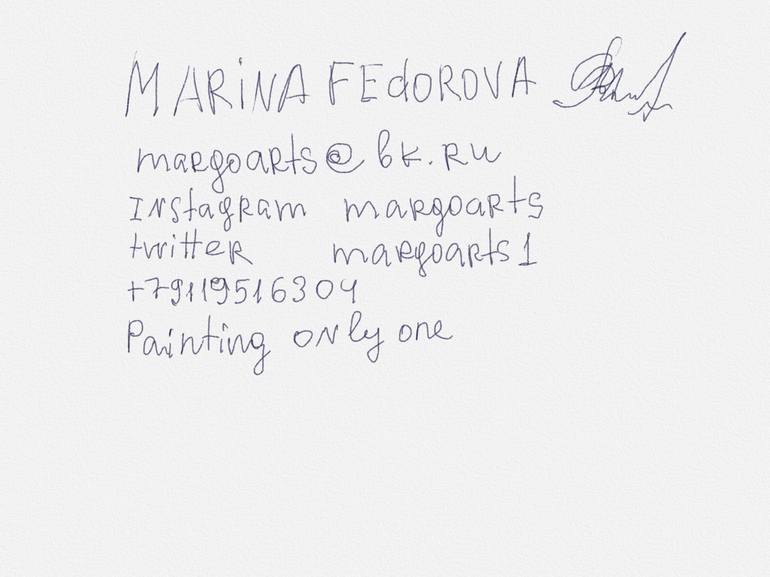 MARiNA FEdOROVA
margoarts@bk.RU
INstagram margoarts
twitter margoarts1
+79119516304
Painting only one